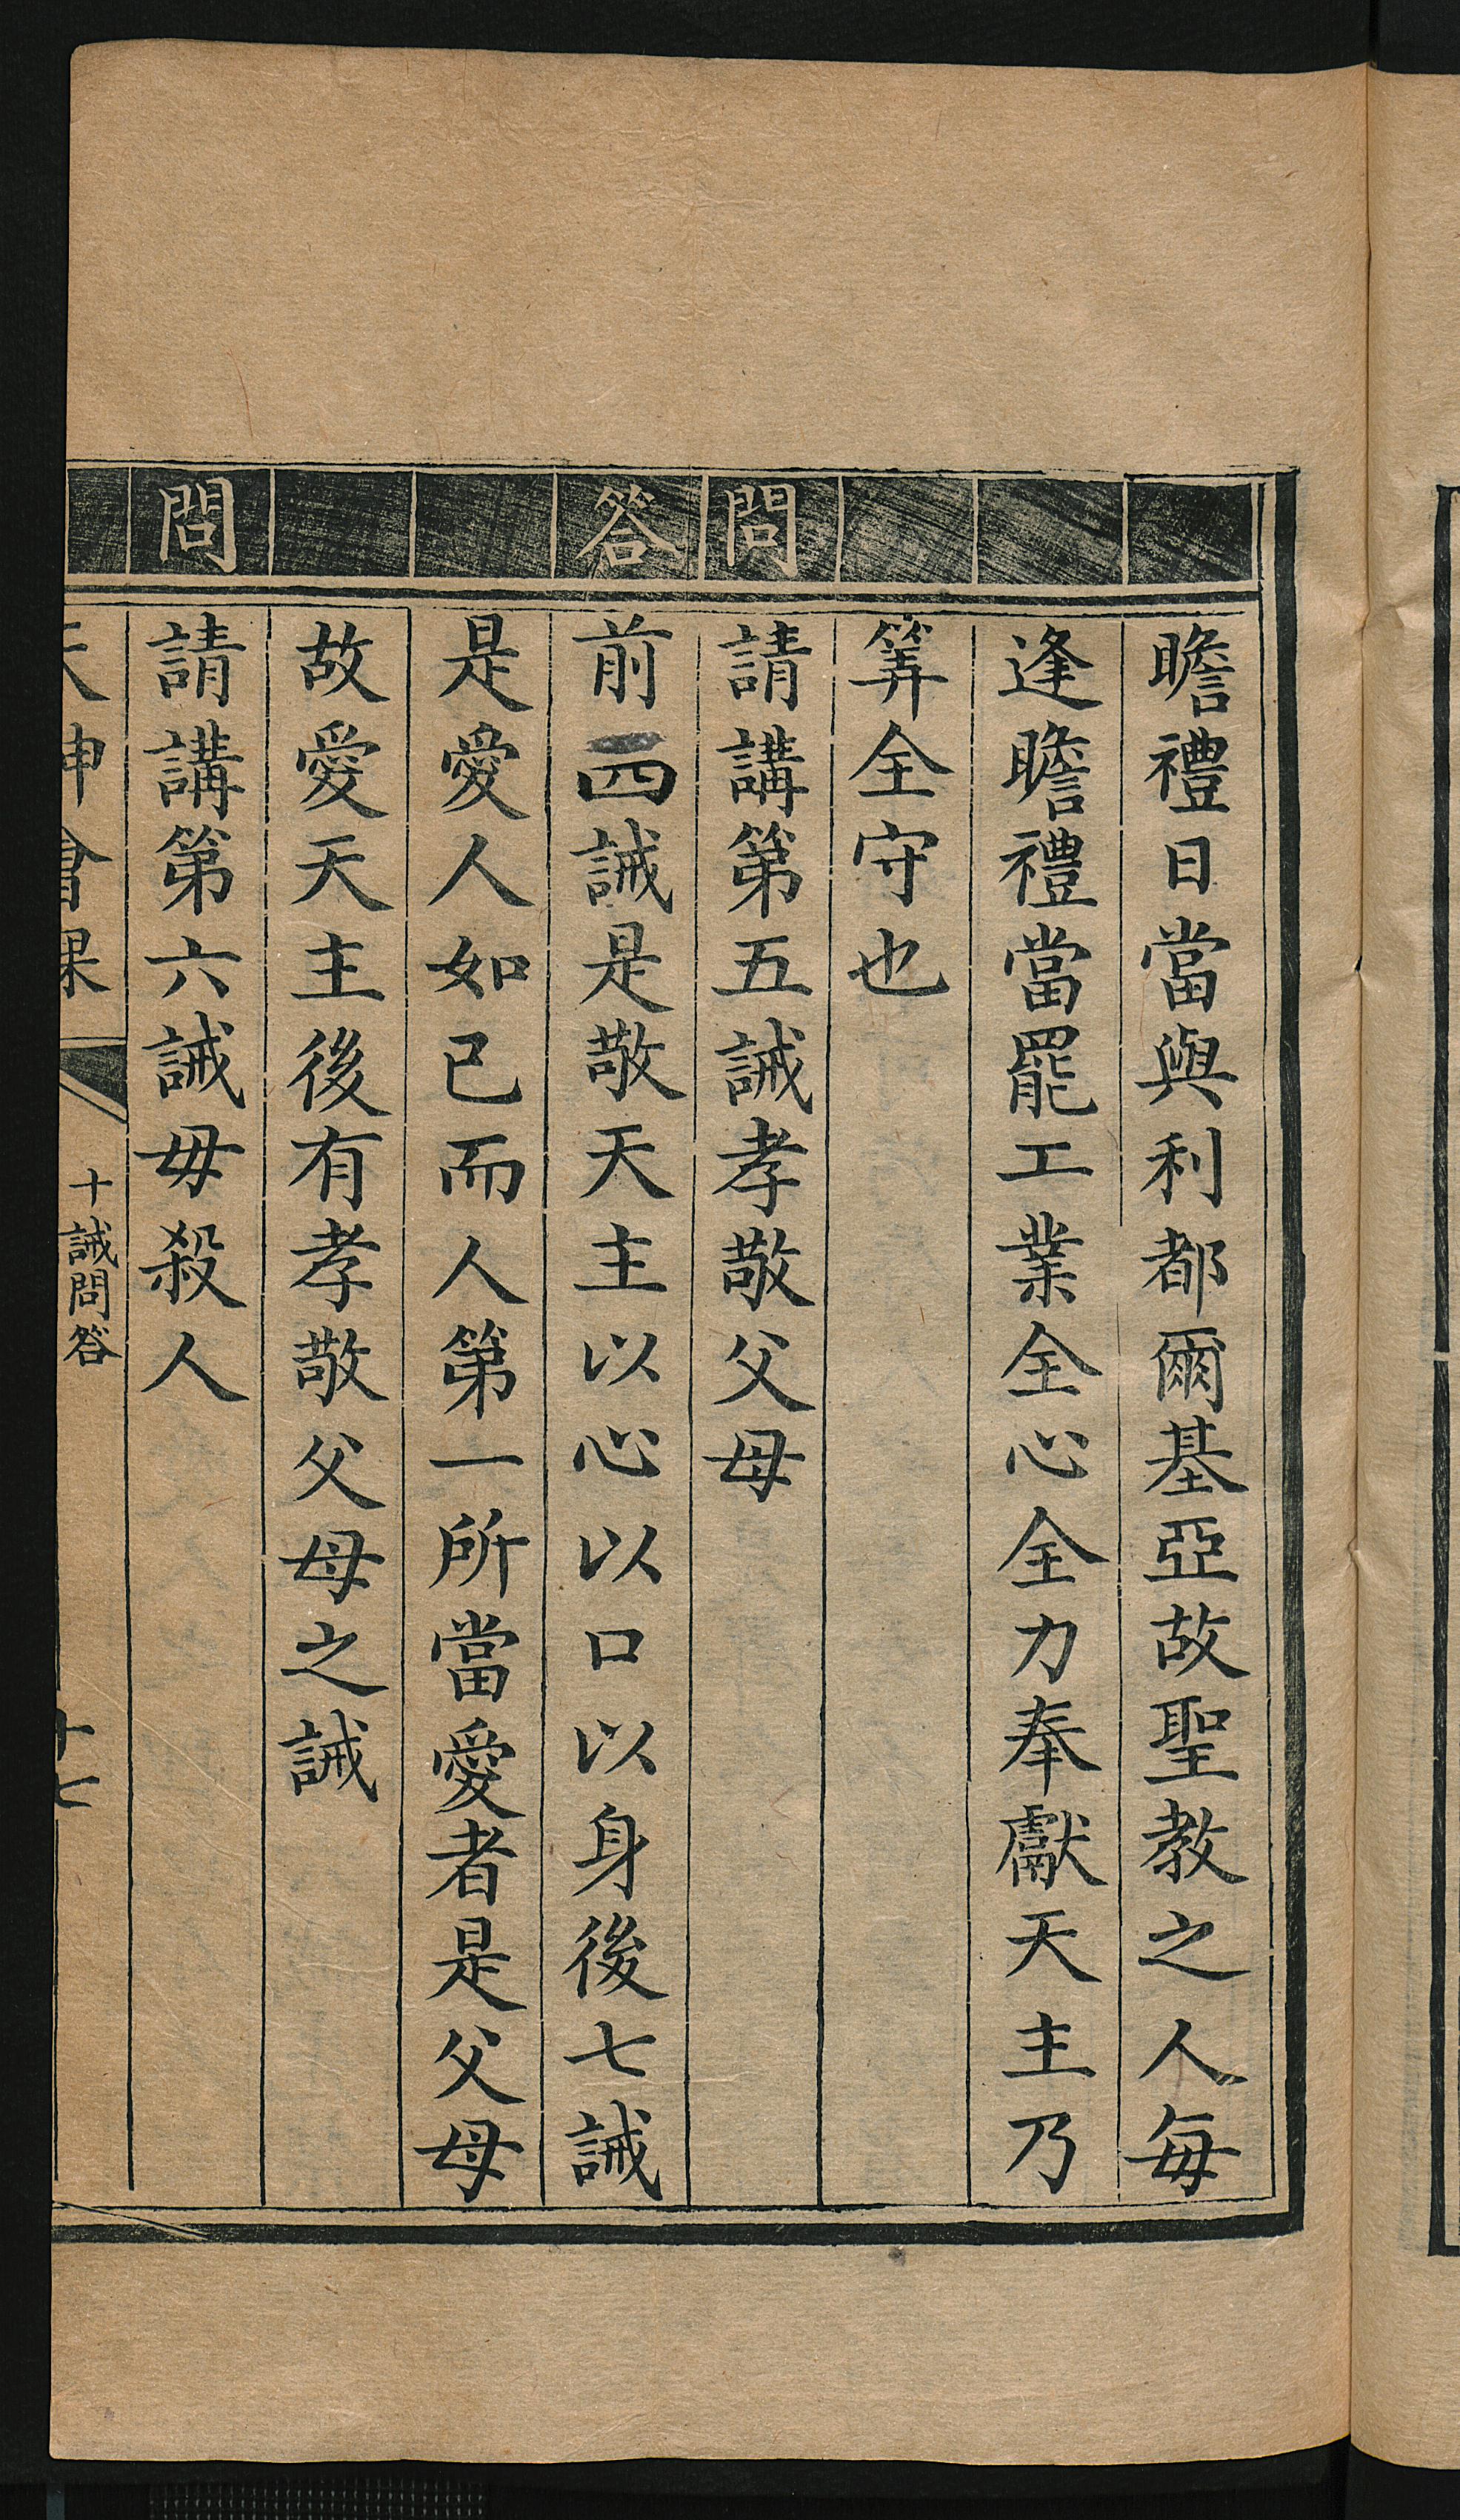 瞻禮日當與利都爾基亞故聖教之人每
逢瞻禮當罷工業全心全力奉獻天主乃
筭全守也
問
請講第五誡孝敬父母
答
前四誡是敬天主以心以口以身後七誡
是愛人如己而人第一所當愛者是父母
故愛天主後有孝敬父母之誡
問
請講第六誡毋殺人
天神會課
十誡問答
十七